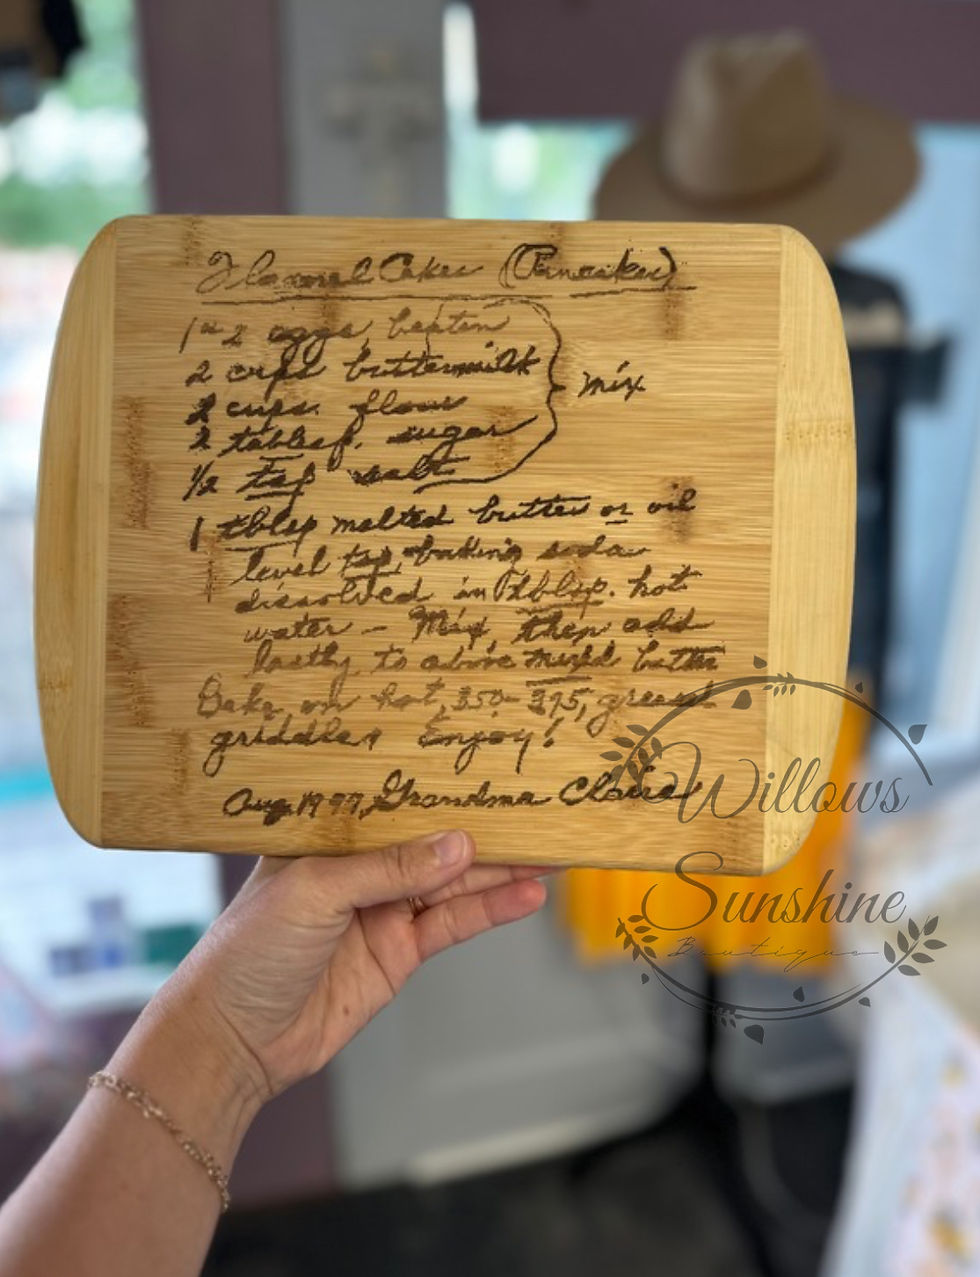 Flannel Cakes (Pancakes)
1 or 2 eggs, beaten
2 cups buttermilk
2 cups flour
2 tablesp. sugar
1/2 tsp salt
Mix
1 tblsp melted butter or oil
level tsp, baking soda
dissolved in tblsp. hot
water - Mix, then add
lastly to above mixed batter
Bake on hot, 350-375, greased
griddle, Enjoy!
Aug 1999, Grandma Claire
Willows
Sunshine
Boutique